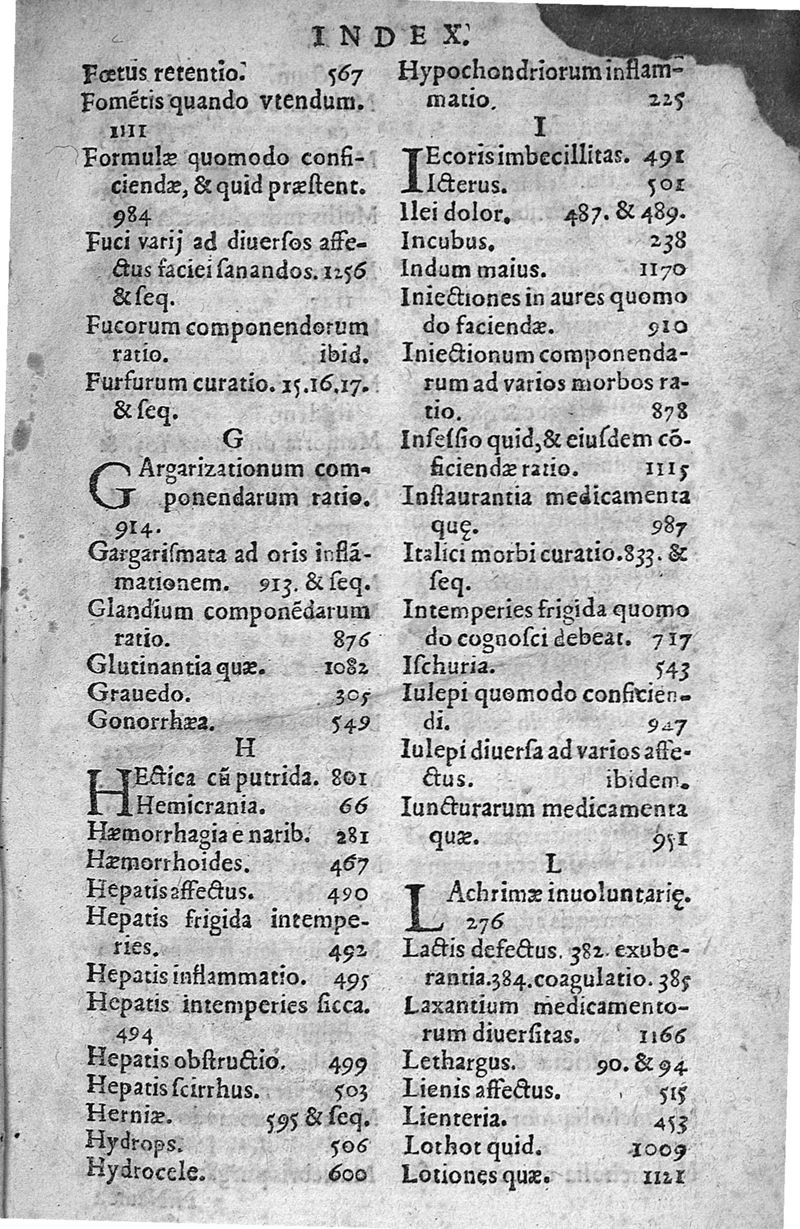 INDEX.
Fœtus retentio. 567
Fomẽtis quando vtendum.
1111
Formulæ quomodo confi-
ciendæ, & quid præſtent.
984
Fuci varij ad diuerſos affe-
ctus faciei ſanandos. 1256
& ſeq.
Fucorum componendorum
ratio. ibid.
Furfurum curatio. 15.16.17.
& ſeq.
G
GArgarizationum com-
ponendarum ratio.
914.
Gargariſmata ad oris inflã-
mationem. 913. & ſeq.
Glandium componẽdarum
ratio. 876
Glutinantia quæ. 1082
Grauedo. 305
Gonorrhæa. 549
H
HEctica cũ putrida. 801
Hemicrania. 66
Hæmorrhagia e narib. 281
Hæmorrhoides. 467
Hepatis affectus. 490
Hepatis frigida intempe-
ries. 492
Hepatis inflammatio. 495
Hepatis intemperies ſicca.
494
Hepatis obſtructio. 499
Hepatis ſcirrhus. 503
Herniæ. 595 & ſeq.
Hydrops. 506
Hydrocele. 600
Hypochondriorum inflam-
matio. 225
I
IEcoris imbecillitas. 491
Icterus. 501
Ilei dolor. 487. & 489.
Incubus. 238
Indum maius. 1170
Iniectiones in aures quomo
do faciendæ. 910
Iniectionum componenda-
rum ad varios morbos ra-
tio. 878
Inſeſſio quid, & eiuſdem cõ-
ficiendæ ratio. 1115
Inſtaurantia medicamenta
quę. 987
Italici morbi curatio. 833. &
ſeq.
Intemperies frigida quomo
do cognoſci debeat. 717
Iſchuria. 543
Iulepi quomodo conficien-
di. 947
Iulepi diuerſa ad varios affe-
ctus. ibidem.
Iuncturarum medicamenta
quæ. 951
L
LAchrimæ inuoluntarię.
276
Lactis defectus. 382. exube-
rantia. 384. coagulatio. 385
Laxantium medicamento-
rum diuerſitas. 1166
Lethargus. 90. & 94
Lienis affectus. 515
Lienteria. 453
Lothot quid. 1009
Lotiones quæ. 1121